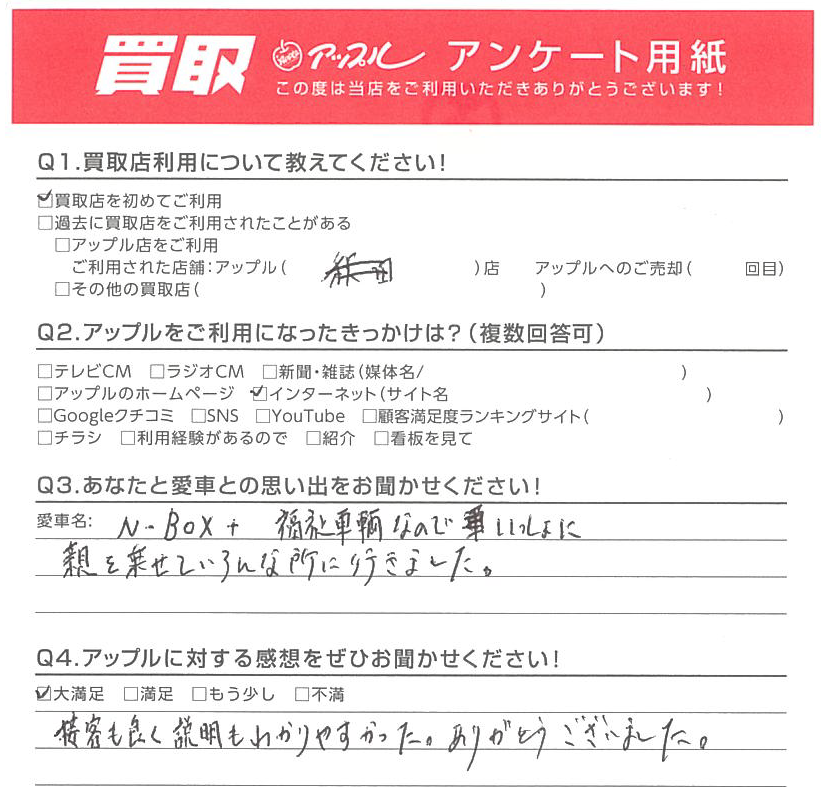 買取 アップル アンケート用紙
この度は当店をご利用いただきありがとうございます!
Q1.買取店利用について教えてください!
☑買取店を初めてご利用
□過去に買取店をご利用されたことがある
□アップル店をご利用
ご利用された店舗:アップル( )店 アップルへのご売却( 回目)
□その他の買取店( )
Q2.アップルをご利用になったきっかけは?(複数回答可)
□テレビCM □ラジオCM □新聞・雑誌(媒体名/ )
□アップルのホームページ ☑インターネット(サイト名 )
□Googleクチコミ □SNS □YouTube □顧客満足度ランキングサイト( )
□チラシ □利用経験があるので □紹介 □看板を見て
Q3.あなたと愛車との思い出をお聞かせください!
愛車名: N-BOX+ 福祉車輌なので いっしょに
親を乗せていろんな所に行きました。
Q4.アップルに対する感想をぜひお聞かせください!
☑大満足 □満足 □もう少し □不満
接客も良く説明もわかりやすかった。ありがとうございました。